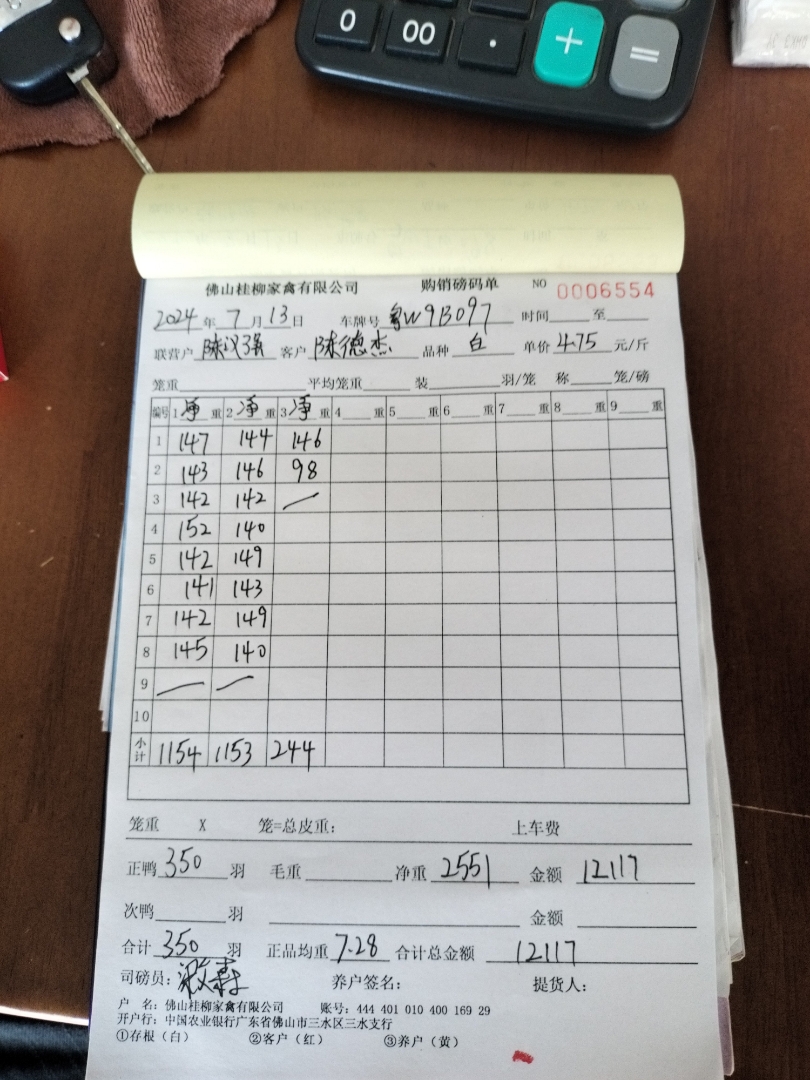 0 00 · + =
佛山桂柳家禽有限公司 购销磅码单 NO 0006554
2024年7月13日 车牌号 粤W9B097 时间 至
联营户 陈汉强 客户 陈德杰 品种 白 单价 4.75 元/斤
笼重 平均笼重 装 羽/笼 称 笼/磅
编号 1 净 重 2 净 重 3 净 重 4 重 5 重 6 重 7 重 8 重 9 重
1 147 144 146
2 143 146 98
3 142 142 —
4 152 140
5 142 149
6 141 143
7 142 149
8 145 140
9 — —
10
小计 1154 1153 244
笼重 X 笼=总皮重: 上车费
正鸭 350 羽 毛重 净重 2551 金额 12117
次鸭 羽 金额
合计 350 羽 正品均重 7.28 合计总金额 12117
司磅员: 养户签名: 提货人:
户 名: 佛山桂柳家禽有限公司 账号: 444 401 010 400 169 29
开户行: 中国农业银行广东省佛山市三水区三水支行
①存根（白） ②客户（红） ③养户（黄）